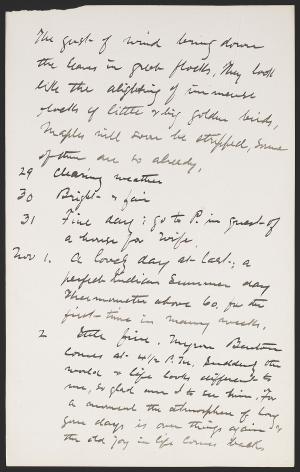 The gust of wind bring down
the leaves in great flocks, They look
like the alighting of immense
flocks of little & big golden birds,
Maples will soon be stripped, some
of them are so already,
29 Clearing weather
30 Bright & fair
31 Fine day; go to P. in quest of
a house for wife.
Nov 1. A lovely day at last; a
perfect Indian Summer day
Thermometer above 60, for the
first time in many weeks,
2 Still fine. Myron Benton
comes at P.M. Suddenly the
world & life looks different to
me, so glad am I to see him. For
a moment the atmosphere of long
gone days is over things again &
the old joy in life comes back